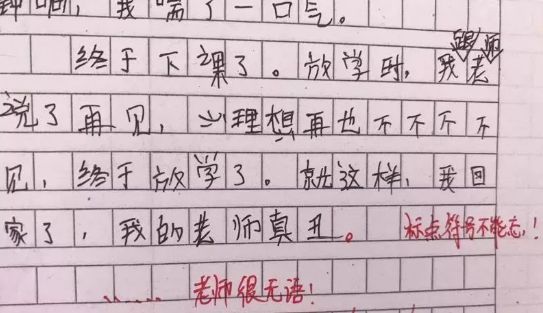 钟响，我喘了一口气。
终于下课了。放学时，我跟老师
说了再见，心理想再也不不不不
见，终于放学了。就这样，我回
家了，我的老师真丑。标点符号不能忘！
......老师很无语！